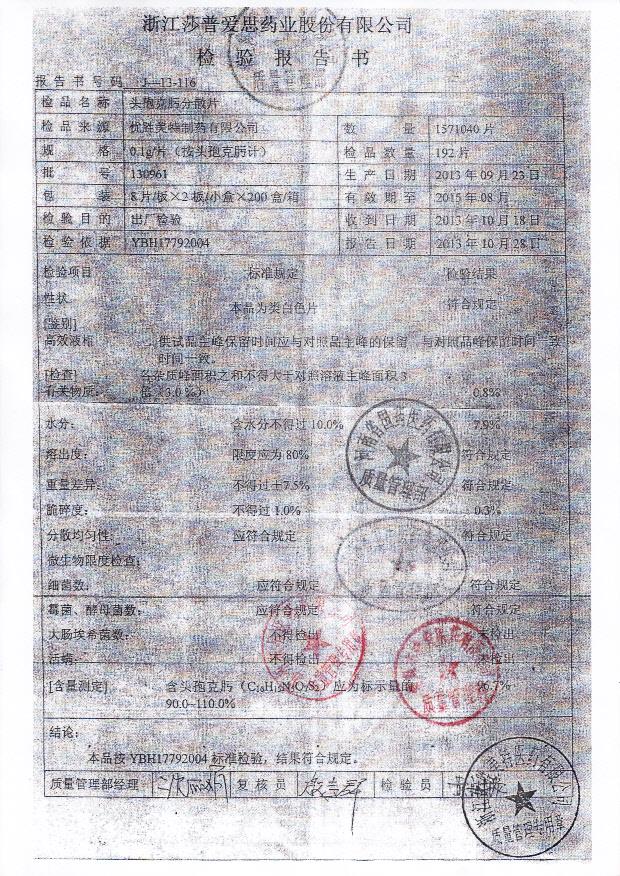 浙江莎普爱思药业股份有限公司
检验报告书
报告书号码 J—13-116
检品名称 头孢克肟分散片
检品来源 优胜美特制药有限公司 数量 1571040片
规格 0.1g/片（按头孢克肟计） 检品数量 192片
批号 130961 生产日期 2013年09月23日
包装 8片/板×2板/小盒×200盒/箱 有效期至 2015年08月
检验目的 出厂检验 收到日期 2013年10月18日
检验依据 YBH17792004 报告日期 2013年10月28日
检验项目 标准规定 检验结果
性状 本品为类白色片 符合规定
[鉴别]
高效液相 供试品主峰保留时间应与对照品主峰的保留 与对照品峰保留时间一致
时间一致。
[检查] 各杂质峰面积之和不得大于对照溶液主峰面积3
有关物质: 倍（3.0%） 0.8%
水分: 含水分不得过10.0% 7.9%
溶出度: 限度应为80% 符合规定
重量差异: 不得过±7.5% 符合规定
脆碎度: 不得过1.0% 0.3%
分散均匀性: 应符合规定 符合规定
微生物限度检查:
细菌数: 应符合规定 符合规定
霉菌、酵母菌数: 应符合规定 符合规定
大肠埃希菌数: 不得检出 未检出
活螨: 不得检出 未检出
[含量测定] 含头孢克肟（C₁₆H₁₅N₅O₇S₂）应为标示量的 96.7%
90.0~110.0%
结论:
本品按YBH17792004标准检验，结果符合规定。
质量管理部经理 复核员 检验员
质量管理专用章